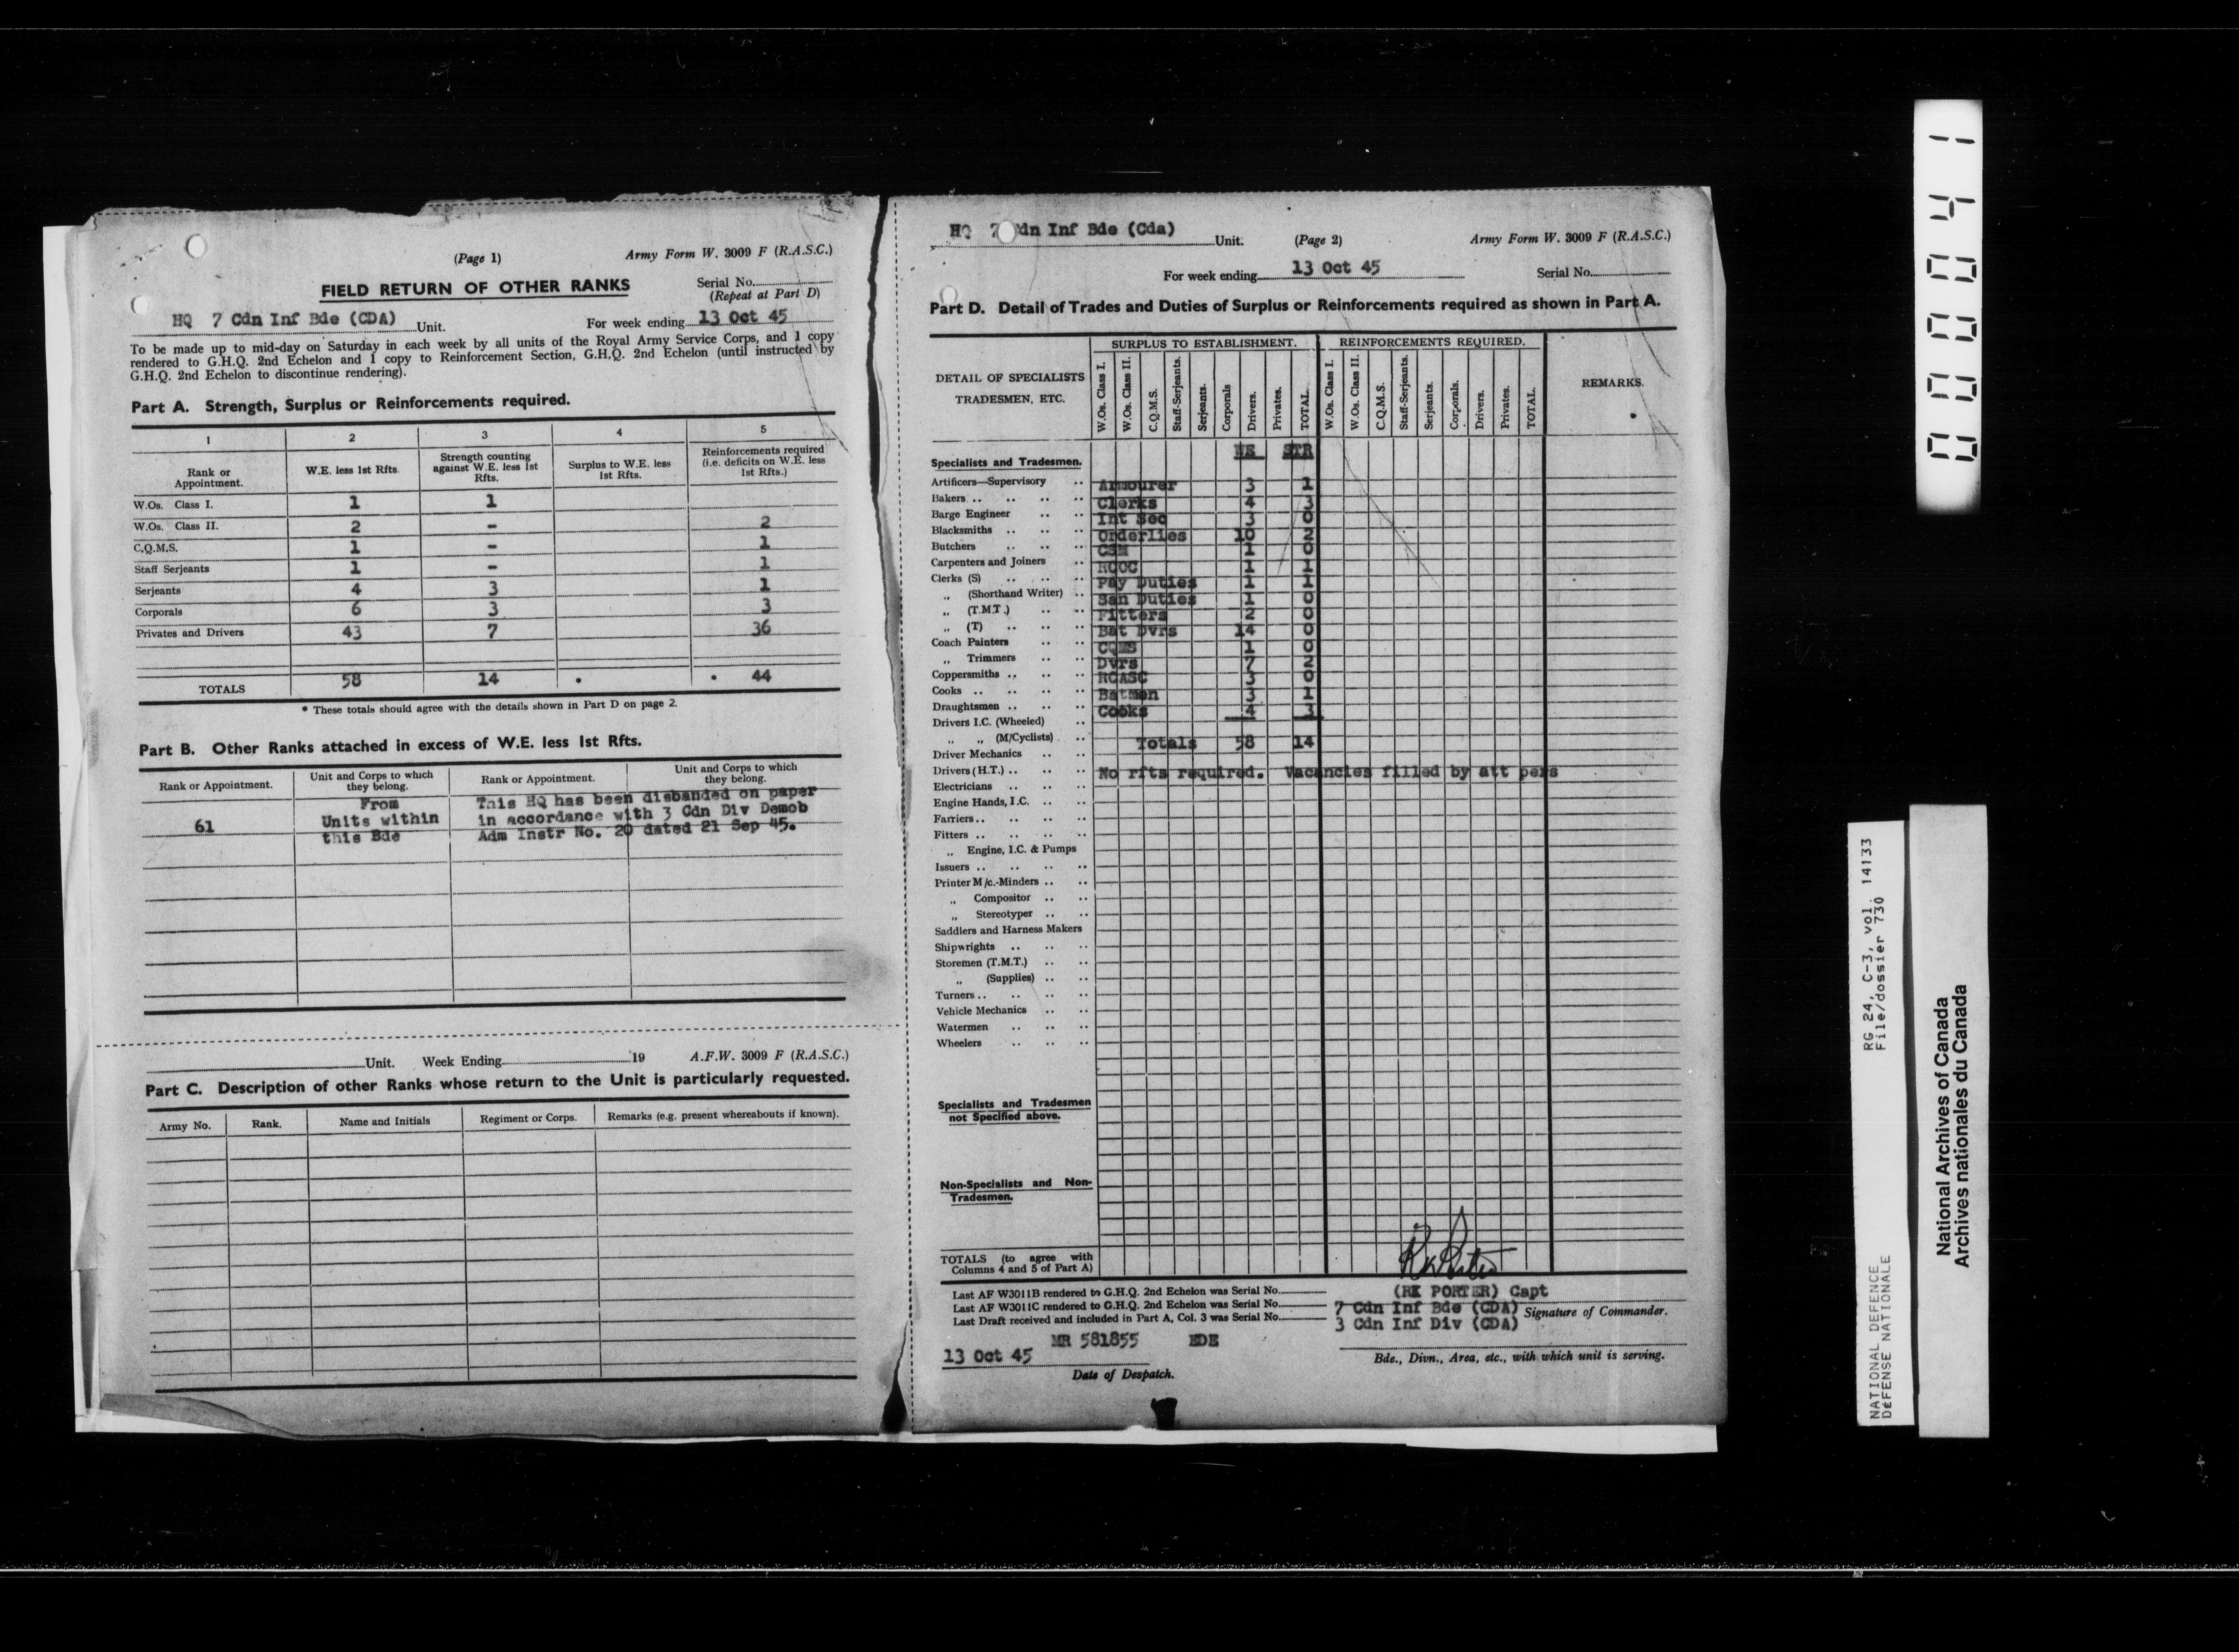 (Page 1)
Army Form W. 3009 F (R.A.S.C.)
FIELD RETURN OF OTHER RANKS
Serial No.
(Repeat at Part D)
HQ 7 Cdn Inf Bde (CDA) Unit. For week ending 13 Oct 45
To be made up to mid-day on Saturday in each week by all units of the Royal Army Service Corps, and 1 copy
rendered to G.H.Q. 2nd Echelon and 1 copy to Reinforcement Section, G.H.Q. 2nd Echelon (until instructed by
G.H.Q. 2nd Echelon to discontinue rendering).
Part A. Strength, Surplus or Reinforcements required.
1 2 3 4 5
Rank or Appointment. W.E. less 1st Rfts. Strength counting against W.E. less 1st Rfts. Surplus to W.E. less 1st Rfts. Reinforcements required (i.e. deficits on W.E. less 1st Rfts.)
W.Os. Class I. 1 1
W.Os. Class II. 2 - 2
C.Q.M.S. 1 - 1
Staff Serjeants 1 - 1
Serjeants 4 3 1
Corporals 6 3 3
Privates and Drivers 43 7 36
TOTALS 58 14 * * 44
* These totals should agree with the details shown in Part D on page 2.
Part B. Other Ranks attached in excess of W.E. less 1st Rfts.
Rank or Appointment. Unit and Corps to which they belong. Rank or Appointment. Unit and Corps to which they belong.
From This HQ has been disbanded on paper
61 Units within in accordance with 3 Cdn Div Demob
this Bde Adm Instr No. 20 dated 21 Sep 45.
Unit. Week Ending 19 A.F.W. 3009 F (R.A.S.C.)
Part C. Description of other Ranks whose return to the Unit is particularly requested.
Army No. Rank. Name and Initials Regiment or Corps. Remarks (e.g. present whereabouts if known).
HQ 7 Cdn Inf Bde (Cda) Unit. (Page 2) Army Form W. 3009 F (R.A.S.C.)
For week ending 13 Oct 45 Serial No.
Part D. Detail of Trades and Duties of Surplus or Reinforcements required as shown in Part A.
DETAIL OF SPECIALISTS TRADESMEN, ETC.
SURPLUS TO ESTABLISHMENT. REINFORCEMENTS REQUIRED.
W.Os. Class I. W.Os. Class II. C.Q.M.S. Staff-Serjeants. Serjeants. Corporals Drivers. Privates. TOTAL. W.Os. Class I. W.Os. Class II. C.Q.M.S. Staff-Serjeants. Serjeants. Corporals. Drivers. Privates. TOTAL.
REMARKS.
WE STR
Specialists and Tradesmen.
Artificers—Supervisory Armourer 3 1
Bakers Clerks 4 3
Barge Engineer Int Sec 3 0
Blacksmiths Orderlies 10 2
Butchers CSM 1 0
Carpenters and Joiners RCOC 1 1
Clerks (S) Pay Duties 1 1
„ (Shorthand Writer) San Duties 1 0
„ (T.M.T.) Fitters 2 0
„ (T) Bat Dvrs 14 0
Coach Painters CQMS 1 0
„ Trimmers Dvrs 7 2
Coppersmiths RCASC 3 0
Cooks Batmen 3 1
Draughtsmen Cooks 4 3
Drivers I.C. (Wheeled)
„ „ (M/Cyclists) Totals 58 14
Driver Mechanics
Drivers (H.T.) No rfts required. Vacancies filled by att pers
Electricians
Engine Hands, I.C.
Farriers
Fitters
„ Engine, I.C. & Pumps
Issuers
Printer M/c.-Minders
„ Compositor
„ Stereotyper
Saddlers and Harness Makers
Shipwrights
Storemen (T.M.T.)
„ (Supplies)
Turners
Vehicle Mechanics
Watermen
Wheelers
Specialists and Tradesmen
not Specified above.
Non-Specialists and Non-
Tradesmen.
TOTALS (to agree with
Columns 4 and 5 of Part A)
Last AF W3011B rendered to G.H.Q. 2nd Echelon was Serial No.
Last AF W3011C rendered to G.H.Q. 2nd Echelon was Serial No.
Last Draft received and included in Part A, Col. 3 was Serial No.
RK Porter
(RK PORTER) Capt
7 Cdn Inf Bde (CDA) Signature of Commander.
3 Cdn Inf Div (CDA)
MR 581855 EDE
13 Oct 45
Date of Despatch.
Bde., Divn., Area, etc., with which unit is serving.
00041
RG 24, C-3, vol. 14133
File/dossier 730
NATIONAL DEFENCE
DÉFENSE NATIONALE
National Archives of Canada
Archives nationales du Canada